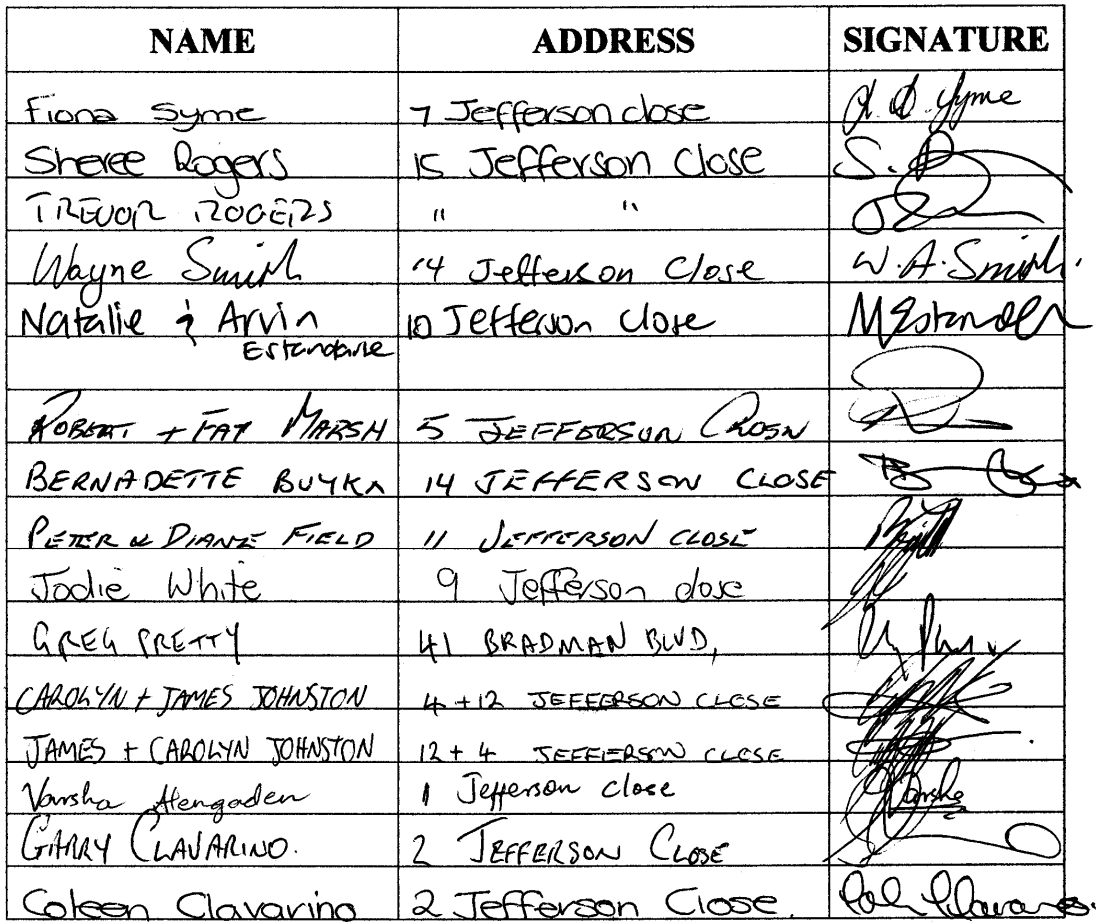 NAME ADDRESS SIGNATURE
Fiona Syme 7 Jefferson close Syme
Sheree Rogers 15 Jefferson Close S.
TREVOR ROGERS " "
Wayne Smith 14 Jefferson Close W.A. Smith.
Natalie & Arvin 10 Jefferson Close
Estandarte
ROBERT + FAY MARSH 5 JEFFERSON
BERNADETTE 14 JEFFERSON CLOSE
PETER & DIANE FIELD 11 JEFFERSON CLOSE
Jodie White 9 Jefferson close
GREG PRETTY 41 BRADMAN BLVD,
CAROLYN + JAMES JOHNSTON 4 + 12 JEFFERSON CLOSE
JAMES + CAROLYN JOHNSTON 12 + 4 JEFFERSON CLOSE
Varsha 1 Jefferson close Varsha
GARRY CLAVARINO. 2 JEFFERSON CLOSE
Coleen Clavarino 2 Jefferson Close.